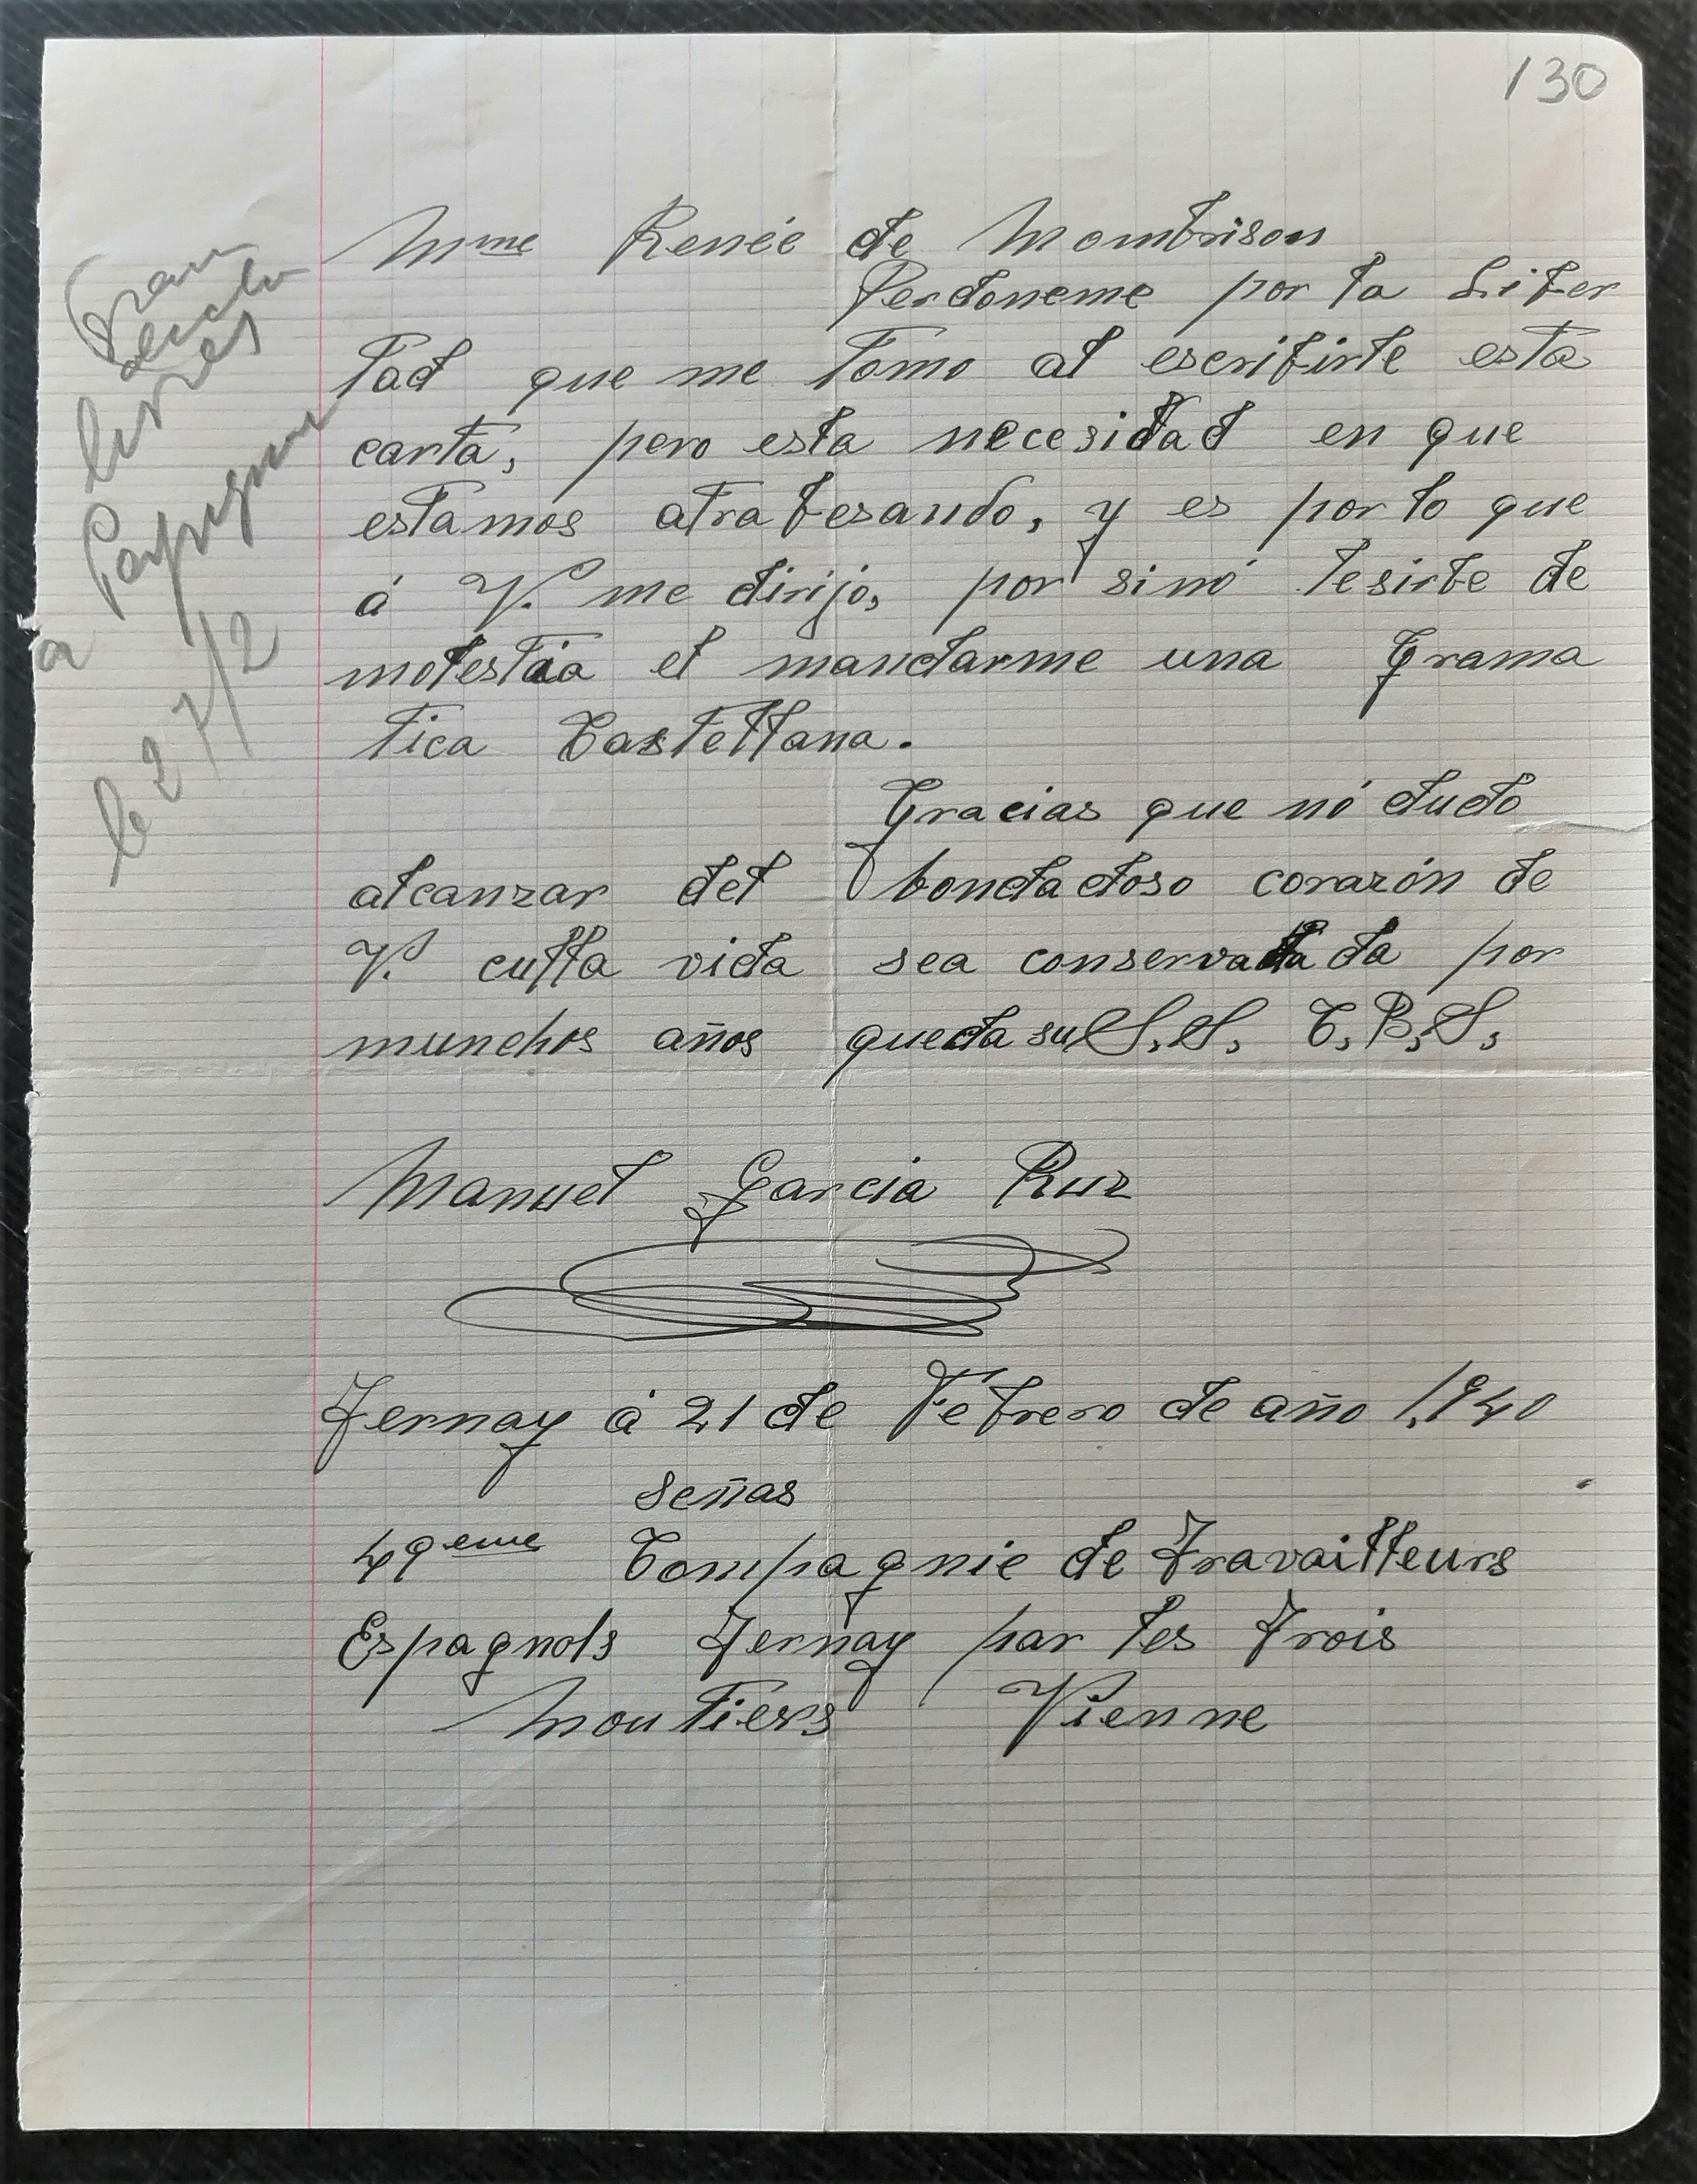 130
Mme Renée de Mombrison
Perdoneme por la Liber
tad que me tomo al escribirle esta
carta, pero esta necesidad en que
estamos atrabesando, y es por lo que
á V. me dirijo, por si nó lesirbe de
molestiia el mandarme una Grama
tica Castellana.
Gracias que nó dudo
alcanzar del bondadoso corazón de
V. culla vida sea conservada da por
munchos años queda su S.S. C.B.S.
Manuel Garcia Ruz
Ternay á 21 de Febrero de año 1.940
señas
49eme Compagnie de Travailleurs
Espagnols Ternay par les Trois
Moutiers Vienne
livres
a
le 27/2